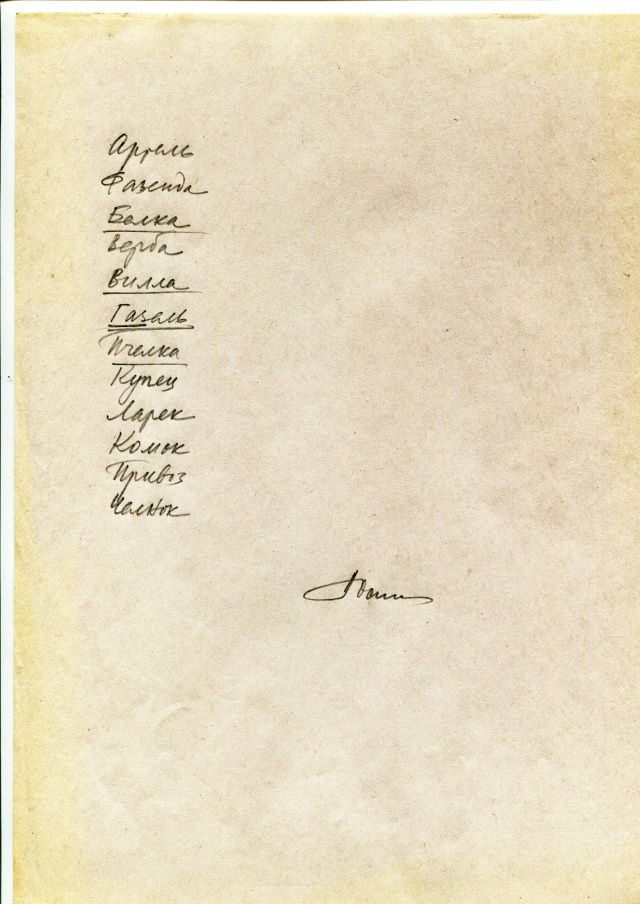 Артель
Фазенда
Белка
Верба
Вилла
Газель
Пчелка
Купец
Ларек
Комок
Привоз
Челнок